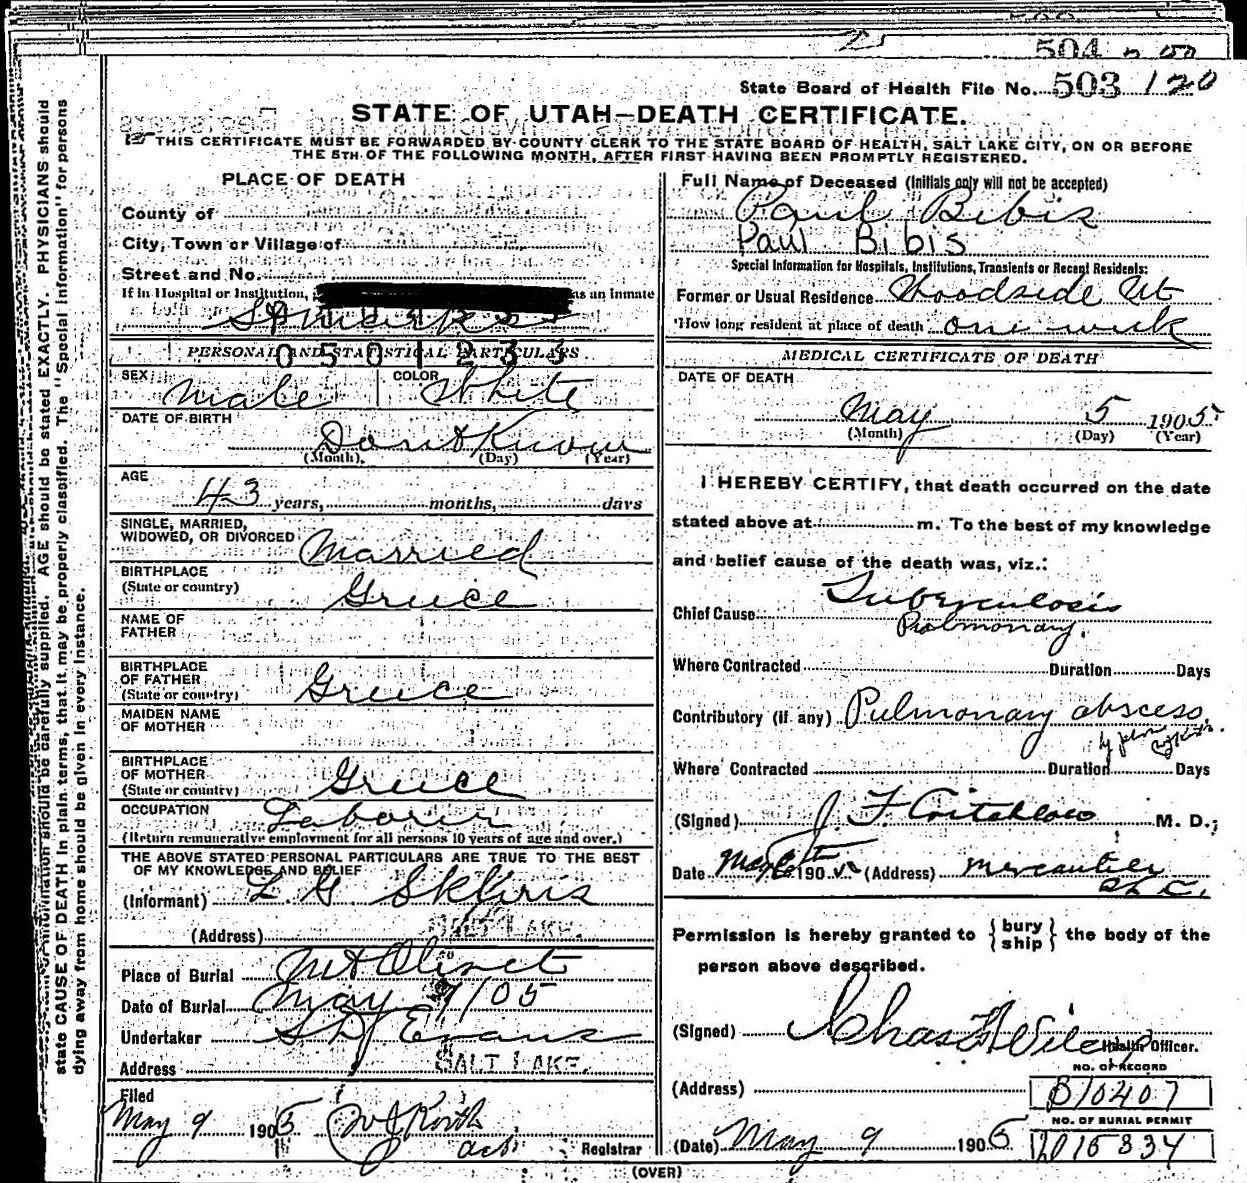 504
State Board of Health File No. 503 120
STATE OF UTAH—DEATH CERTIFICATE.
THIS CERTIFICATE MUST BE FORWARDED BY COUNTY CLERK TO THE STATE BOARD OF HEALTH, SALT LAKE CITY, ON OR BEFORE
THE 5TH OF THE FOLLOWING MONTH, AFTER FIRST HAVING BEEN PROMPTLY REGISTERED.
state CAUSE OF DEATH in plain terms, that it may be properly classified. The "Special Information" for persons
dying away from home should be given in every instance.
information should be carefully supplied. AGE should be stated EXACTLY. PHYSICIANS should
PLACE OF DEATH
County of
City, Town or Village of
Street and No.
If in Hospital or Institution, as an inmate
St Marks
PERSONAL AND STATISTICAL PARTICULARS
0501233
SEX Male COLOR White
DATE OF BIRTH Don't Know
(Month) (Day) (Year)
AGE
43 years, months, days
SINGLE, MARRIED,
WIDOWED, OR DIVORCED Married
BIRTHPLACE
(State or country) Greece
NAME OF
FATHER
BIRTHPLACE
OF FATHER
(State or country) Greece
MAIDEN NAME
OF MOTHER
BIRTHPLACE
OF MOTHER
(State or country) Greece
OCCUPATION Laborer
(Return remunerative employment for all persons 10 years of age and over.)
THE ABOVE STATED PERSONAL PARTICULARS ARE TRUE TO THE BEST
OF MY KNOWLEDGE AND BELIEF
(Informant) L. G Skliris
(Address) SALT LAKE.
Place of Burial Mt Olivet
Date of Burial May 9/05
Undertaker S D Evans
Address SALT LAKE.
Filed
May 9 1905 Korth
Registrar
Full Name of Deceased (Initials only will not be accepted)
Paul Bibis
Paul Bibis
Special Information for Hospitals, Institutions, Transients or Recent Residents:
Former or Usual Residence Woodside Ut
How long resident at place of death one week
MEDICAL CERTIFICATE OF DEATH
DATE OF DEATH
May 5 1905
(Month) (Day) (Year)
I HEREBY CERTIFY, that death occurred on the date
stated above at m. To the best of my knowledge
and belief cause of the death was, viz.:
Chief Cause Tuberculosis
Pulmonary.
Where Contracted Duration Days
Contributory (if any) Pulmonary abscess,
Where Contracted Duration Days
(Signed) J. F. Critchlow M. D.;
Date May 6th 1905 (Address) Mercantile
S L C.
Permission is hereby granted to {bury ship} the body of the
person above described.
(Signed) Chas
Health Officer.
NO. OF RECORD
(Address) B10407
NO. OF BURIAL PERMIT
(Date) May 9 1905 15334
(OVER)